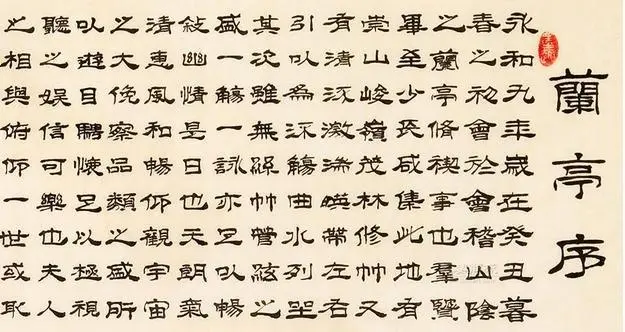 蘭亭序
永和九年歲在癸丑暮
春之初會於會稽山陰
之蘭亭脩禊事也羣賢
畢至少長咸集此地有
崇山峻嶺茂林修竹又
有清流激湍暎帶左右
引以為流觴曲水列坐
其次雖無絲竹管絃之
盛一觴一詠亦足以暢
敘幽情是日也天朗氣
清惠風和暢仰觀宇宙
之大俛察品類之盛所
以遊目騁懷足以極視
聽之娛信可樂也夫人
之相與俯仰一世或取